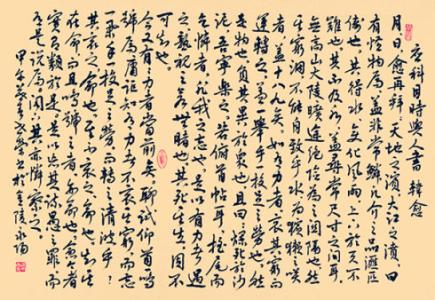 應科目時與人書 韓愈
月日愈再拜天地之濱大江之濆曰
有怪物焉蓋非常鱗凡介之品匯匹
儔也其得水變化風雨上下于天不
難也其不及水蓋尋常尺寸之間耳
無高山大陵曠途絕險為之關隔也然
其窮涸不能自致乎水為獱獺之笑
者蓋十八九矣如有力者哀其窮而
運轉之蓋一舉手一投足之勞也然
是物也負其異於衆也且曰爛死於沙
泥吾寧樂之若俯首帖耳搖尾而
乞憐者非我之志也是以有力者遇
之熟視之若無睹也其死其生固不
可知也
今又有有力者當前矣聊試仰首鳴
號焉庸詎知有力者不哀其窮而忘
一舉手一投足之勞而轉之清波乎
其哀之命也其不哀之命也知其
在命而且鳴號之者亦命也愈今者
實有類於是是以忘其疏愚之罪而
有是說焉閣下其亦憐察之
甲午